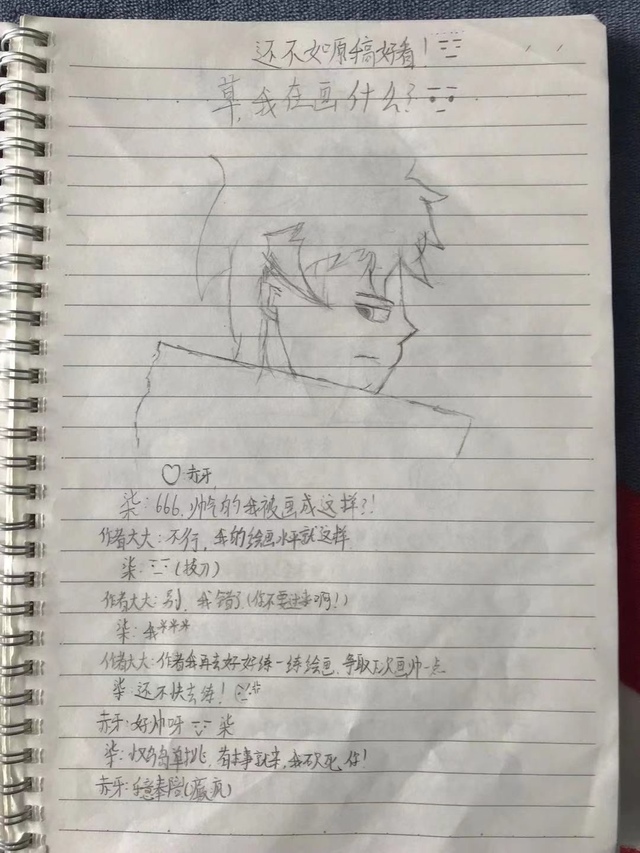 还不如原稿好看!
草,我在画什么?
♡赤牙
柒:666,帅气的我被画成这样?!
作者大大:不行,我的绘画水平就这样
柒:(拔刀)
作者大大:别,我错了(你不要过来啊!)
柒:我***
作者大大:作者我再去好好练一练绘画,争取下次画帅一点
柒 还不快去练!
赤牙:好帅呀 柒
柒:单挑,有本事就来,我砍死你!
赤牙:乐意奉陪(疯)